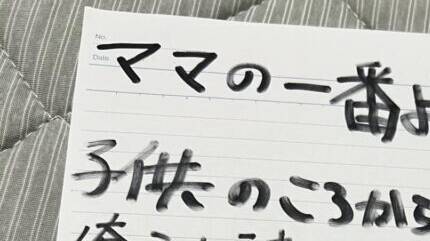 No.
Date
ママの一番よ
子供のころから